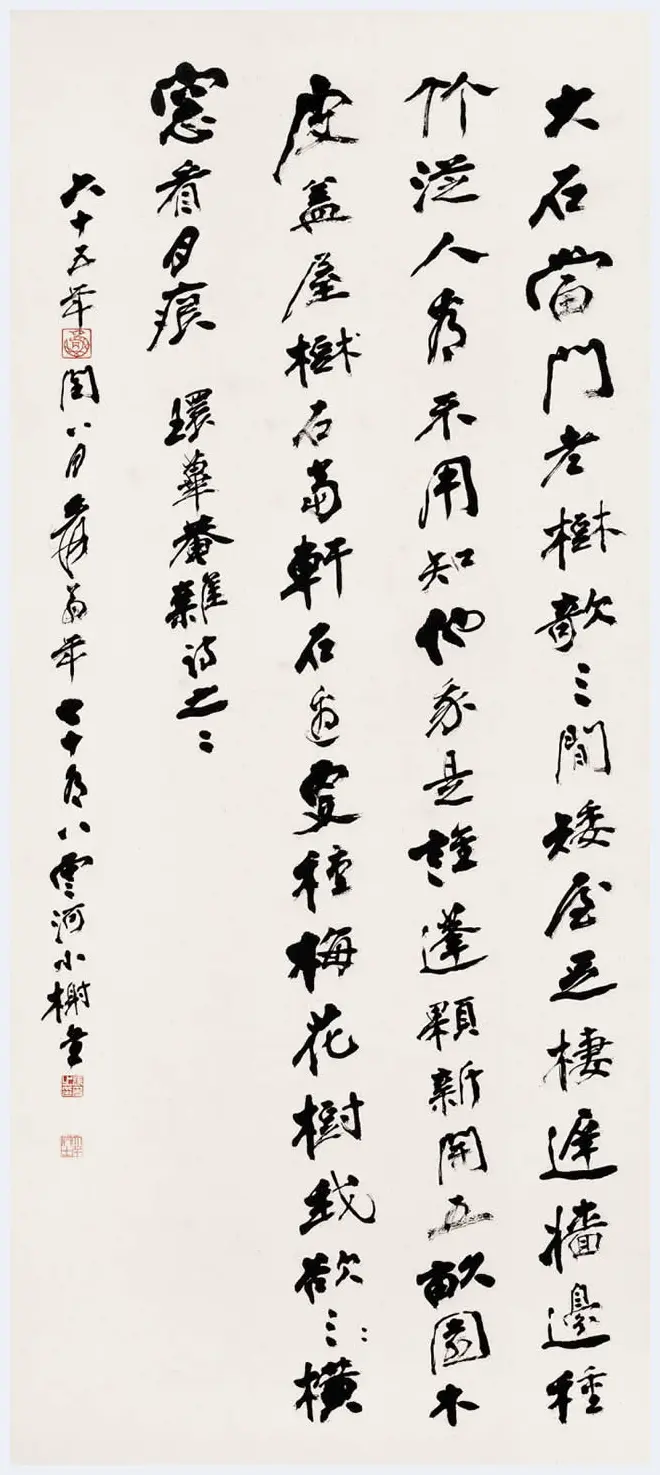 大石當門老樹欹三間矮屋足棲遲牆邊種
竹從人看不用知他家是誰蓬顆新開五畝園木
皮蓋屋樹石為軒石邊更種梅花樹我欲三橫
窻看月痕 環蓽盦雜詩之二
六十五年閏八月爰翁年七十有八雲河小榭書